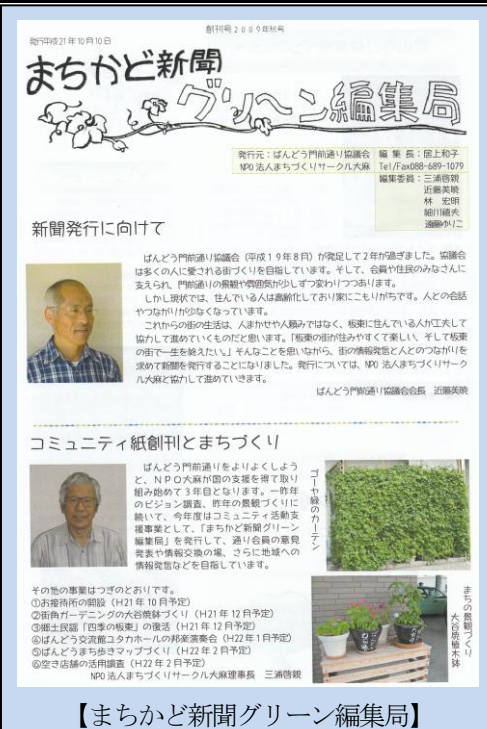 創刊号2009年秋号
発行平成21年10月10日
まちかど新聞
グリーン編集局
発行元：ばんどう門前通り協議会
NPO法人まちづくりサークル大麻
編集長：居上和子
Tel/Fax088-689-1079
編集委員：三浦啓親
近藤英暁
林　宏明
細川禧夫
遠藤ゆりこ
新聞発行に向けて
ばんどう門前通り協議会（平成19年8月）が発足して2年が過ぎました。協議会
は多くの人に愛される街づくりを目指しています。そして、会員や住民のみなさんに
支えられ、門前通りの景観や雰囲気が少しずつ変わりつつあります。
しかし現状では、住んでいる人は高齢化しており家にこもりがちです。人との会話
やつながりが少なくなっています。
これからの街の生活は、人まかせや人頼みではなく、板東に住んでいる人が工夫して
協力して進めていくものだと思います。「板東の街が住みやすくて楽しい、そして板東
の街で一生を終えたい。」そんなことを思いながら、街の情報発信と人とのつながりを
求めて新聞を発行することになりました。発行については、NPO法人まちづくりサーク
ル大麻と協力して進めていきます。
ばんどう門前通り協議会会長　近藤英暁
コミュニティ紙創刊とまちづくり
ばんどう門前通りをよりよくしよう
と、NPO大麻が国の支援を得て取り
組み始めて3年目となります。一昨年
のビジョン調査、昨年の景観づくりに
続いて、今年度はコミュニティ活動支
援事業として、「まちかど新聞グリーン
編集局」を発行して、通り会員の意見
発表や情報交換の場、さらに地域への
情報発信などを目指しています。
ゴーヤ緑のカーテン
その他の事業はつぎのとおりです。
①お接待所の開設（H21年10月予定）
②街角ガーデニングの大谷焼鉢づくり（H21年12月予定）
③郷土民謡「四季の板東」の復活（H21年12月予定）
④ばんどう交流館ユタカホールの邦楽演奏会（H22年1月予定）
⑤ばんどうまち歩きマップづくり（H22年2月予定）
⑥空き店舗の活用調査（H22年2月予定）
NPO法人まちづくりサークル大麻理事長　三浦啓親
まちの景観づくり
大谷焼植木鉢
【まちかど新聞グリーン編集局】